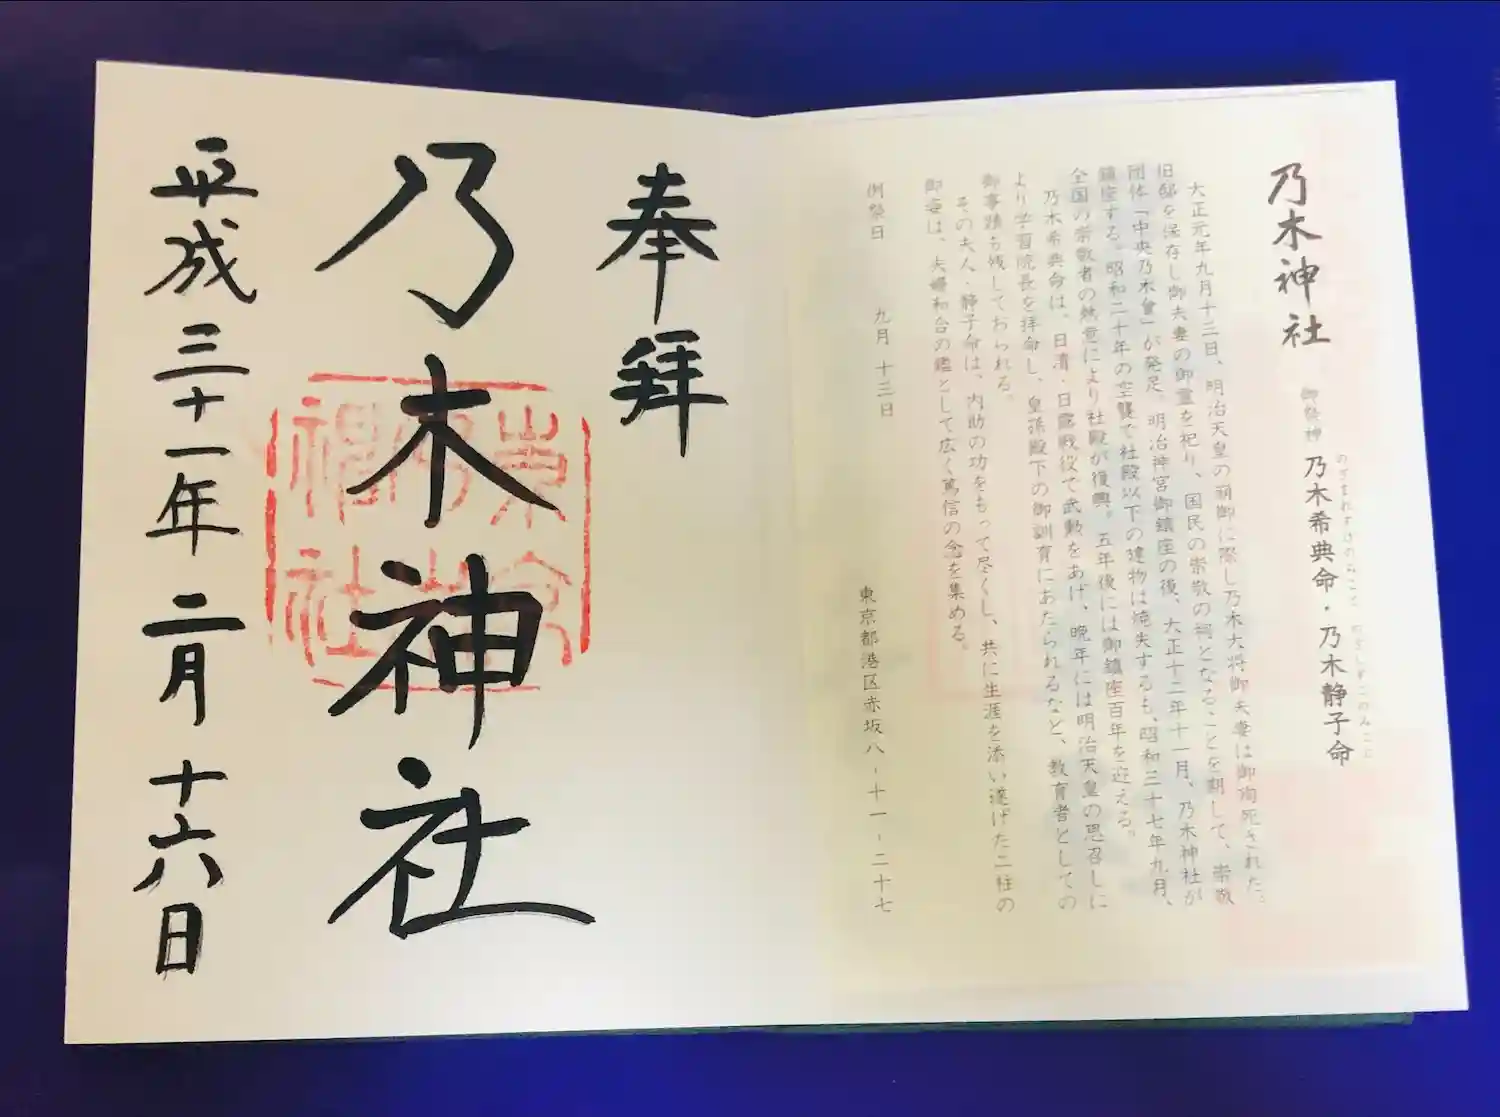 乃木神社
御祭神 乃木希典命・乃木静子命
のぎまれすけのみこと のぎしずこのみこと
大正元年九月十三日、明治天皇の崩御に際し乃木大将御夫妻は御殉死された。
旧邸を保存し御夫妻の御霊を祀り、国民の崇敬の祠となることを期して、崇敬
団体「中央乃木會」が発足。明治神宮御鎮座の後、大正十二年十一月、乃木神社が
鎮座する。昭和二十年の空襲で社殿以下の建物は焼失するも、昭和三十七年九月、
全国の崇敬者の熱意により社殿が復興。五年後には御鎮座百年を迎える。
乃木希典命は、日清・日露戦役で武勲をあげ、晩年には明治天皇の思召しに
より学習院長を拝命し、皇孫殿下の御訓育にあたられるなど、教育者としての
御事蹟も残しておられる。
その夫人・静子命は、内助の功をもって尽くし、共に生涯を添い遂げた二柱の
御姿は、夫婦和合の鑑として広く篤信の念を集める。
例祭日 九月十三日
東京都港区赤坂八-十一-二十七
奉拝
乃木神社
平成三十一年二月十六日